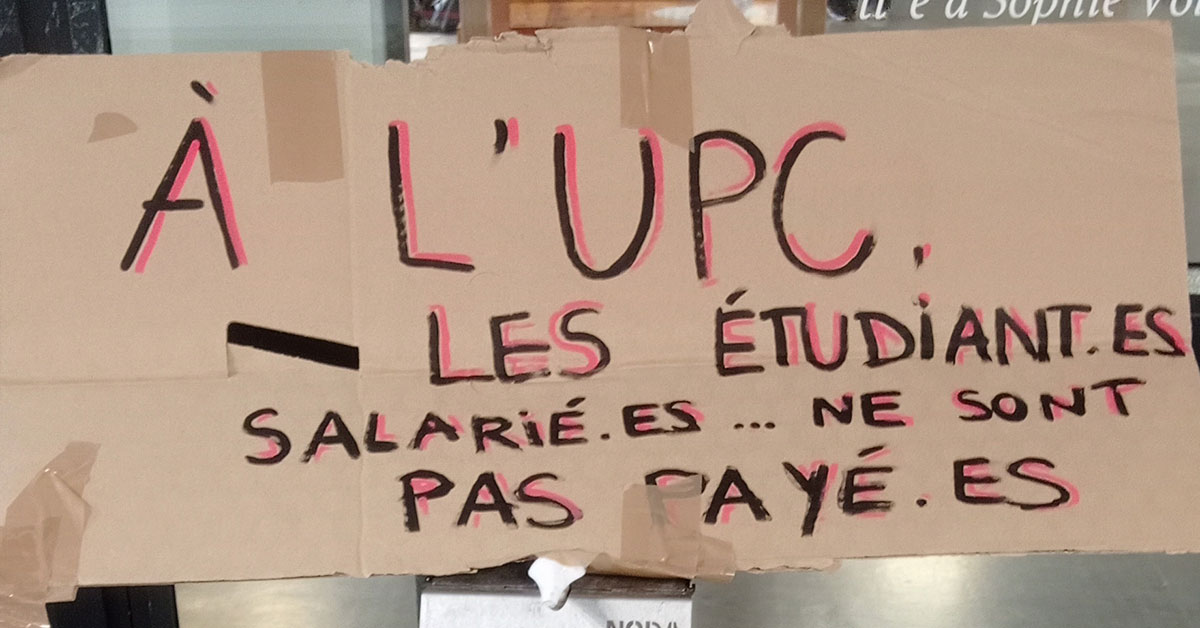 à Sophie
À L'UPC.
LES ÉTUDIANT.ES
SALARIÉ.ES... NE SONT
PAS PAYÉ.ES